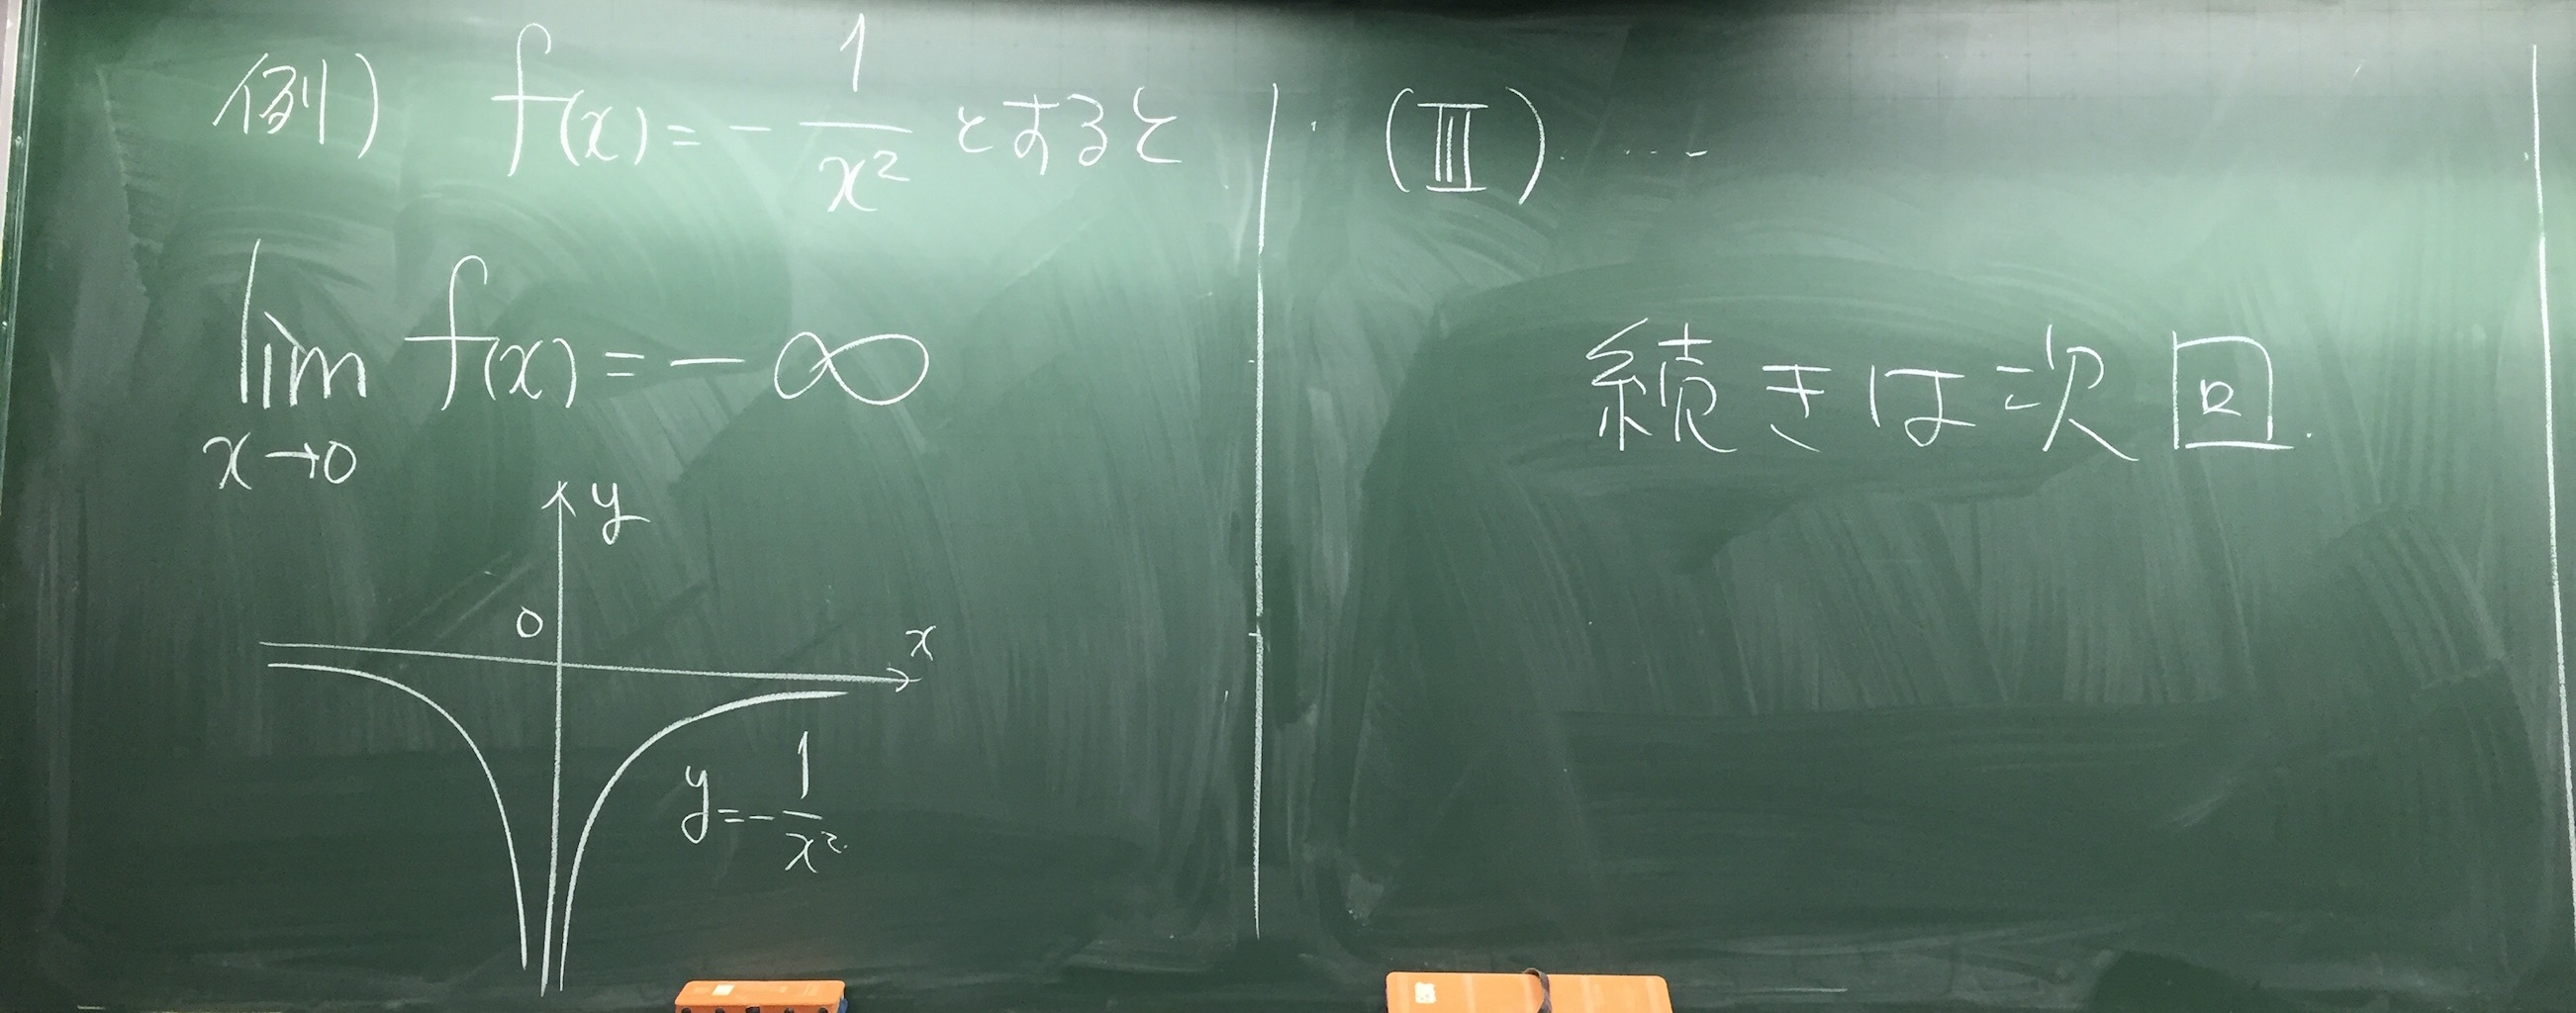 例) f(x) = - 1/x² とすると
lim f(x) = - ∞
x→0
y
0
x
y = - 1/x²
(Ⅲ) ・・・・
続きは次回.